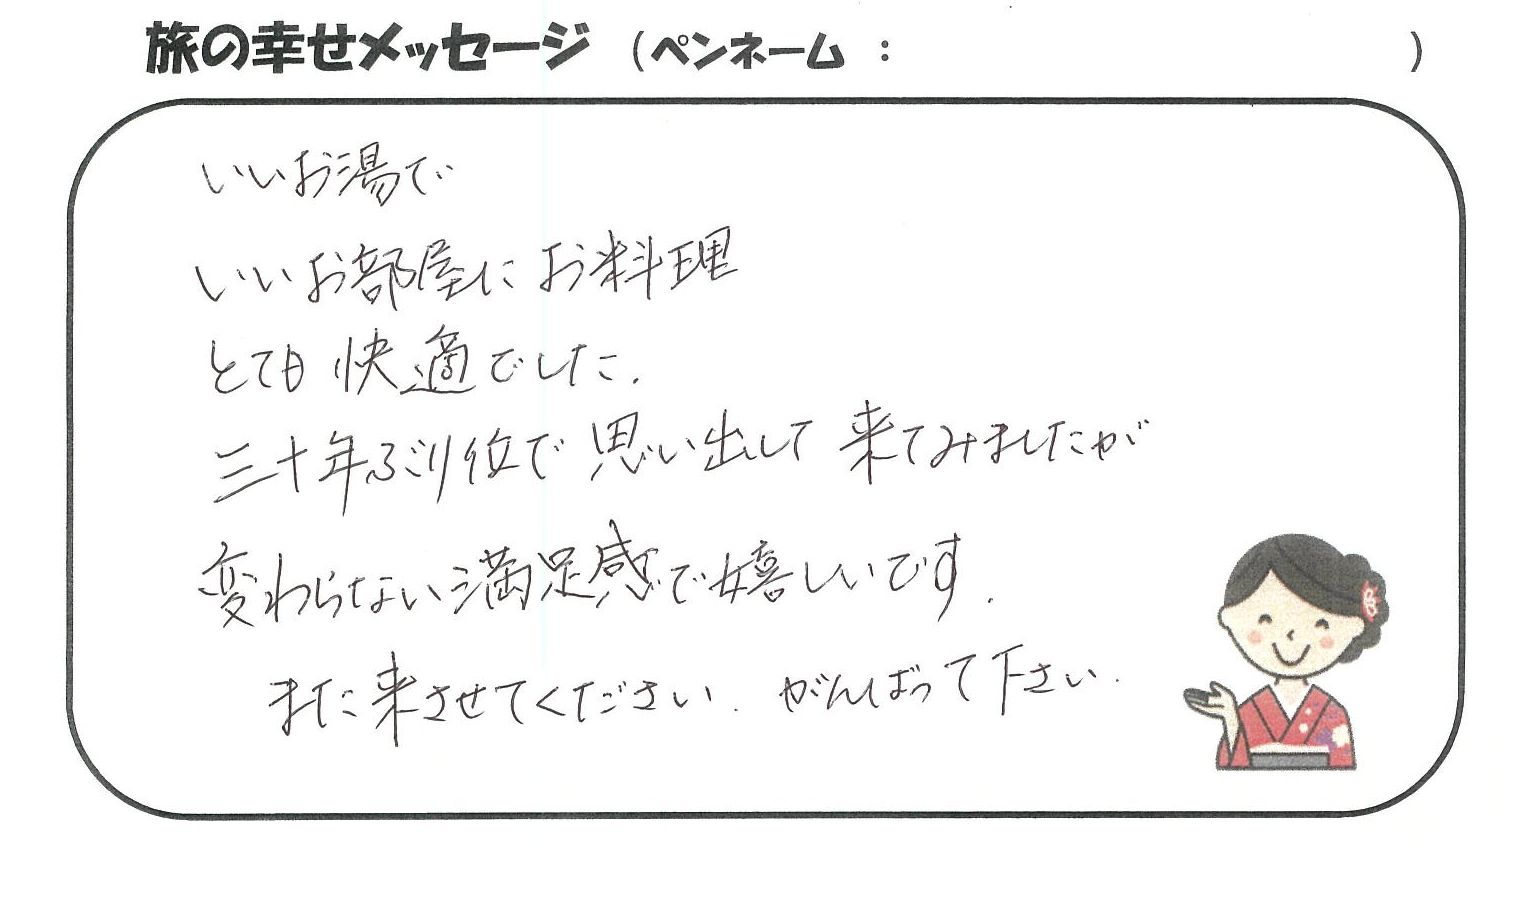 旅の幸せメッセージ （ペンネーム ： ）
いいお湯で
いいお部屋に お料理
とても 快適でした.
三十年ぶり位で 思い出して 来てみましたが
変わらない満足感で嬉しいです.
また来させてください. がんばって下さい.